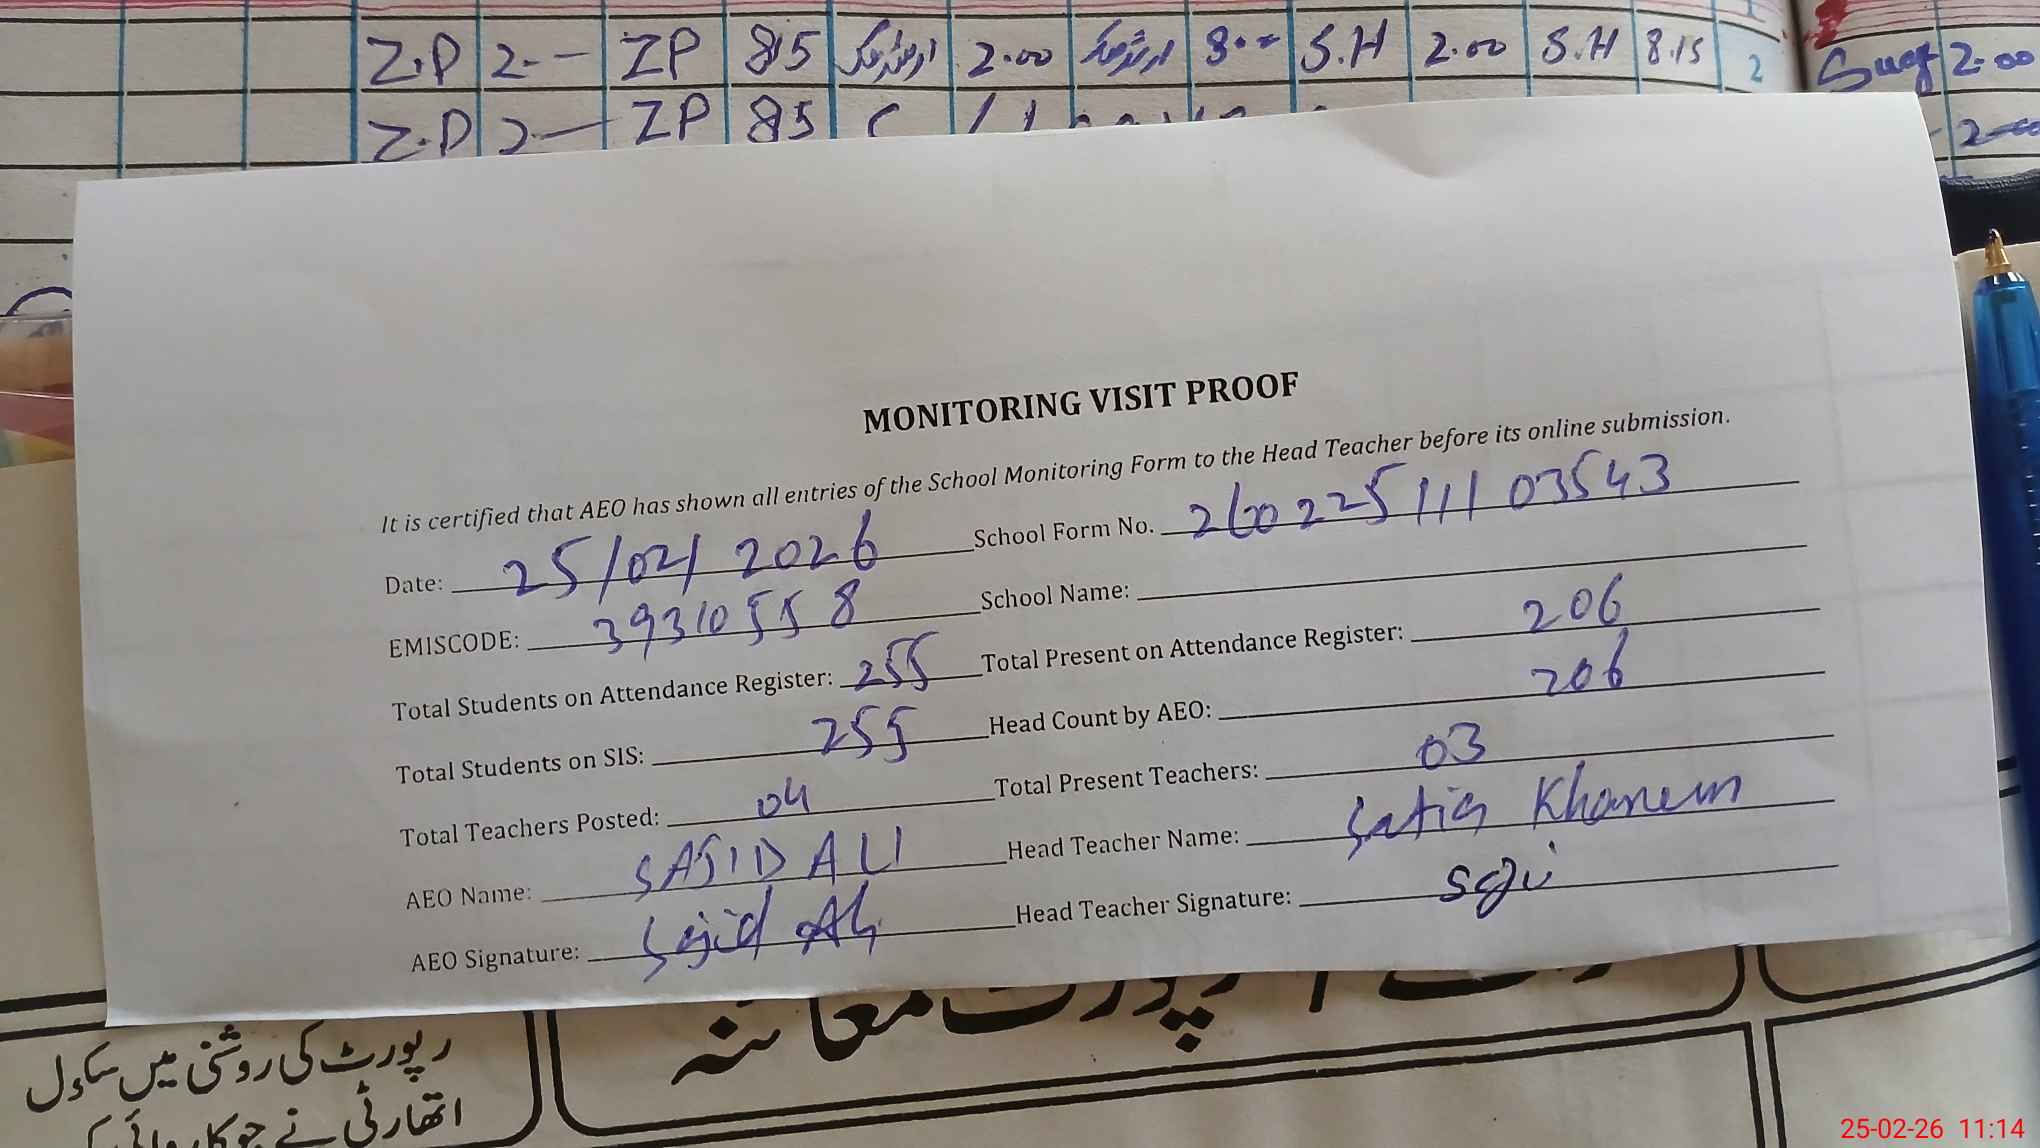 Z.P 2-- ZP 815 2.00 8:00 S.H 2.00 S.H 8.15 2 2.00
Z.P 2-- ZP 815
MONITORING VISIT PROOF
It is certified that AEO has shown all entries of the School Monitoring Form to the Head Teacher before its online submission.
Date: 25/02/2026 School Form No. 26022511103543
EMISCODE: 39310558 School Name:
Total Students on Attendance Register: 255 Total Present on Attendance Register: 206
Total Students on SIS: 255 Head Count by AEO: 206
Total Teachers Posted: 04 Total Present Teachers: 03
AEO Name: SAJID ALI Head Teacher Name: Satia Khanem
AEO Signature: Sajid Ali Head Teacher Signature:
رپورٹ معائنہ
رپورٹ کی روشنی میں سکول
اتھارٹی نے جو کاروائی کی
25-02-26 11:14